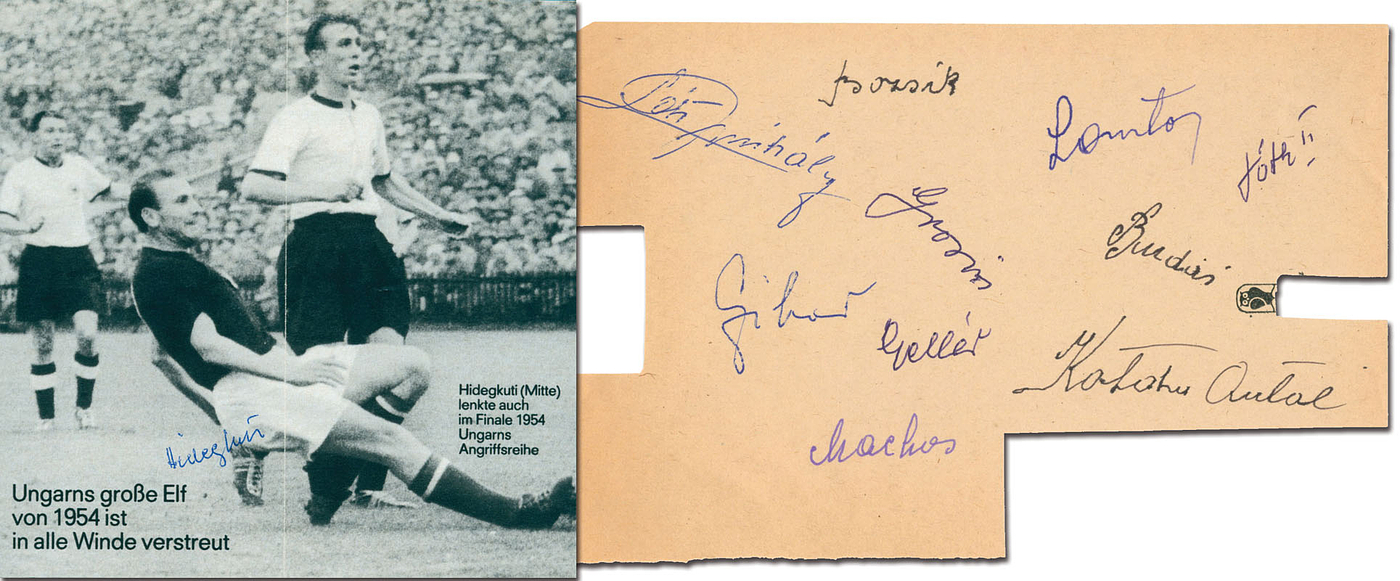 Hidegkuti (Mitte)
lenkte auch
im Finale 1954
Ungarns
Angriffsreihe
Hidegkuti
Ungarns große Elf
von 1954 ist
in alle Winde verstreut
Bozsik
Mihály
Lantos
Tóth II.
Grosics
Budai
Gellér
Antal
Machos